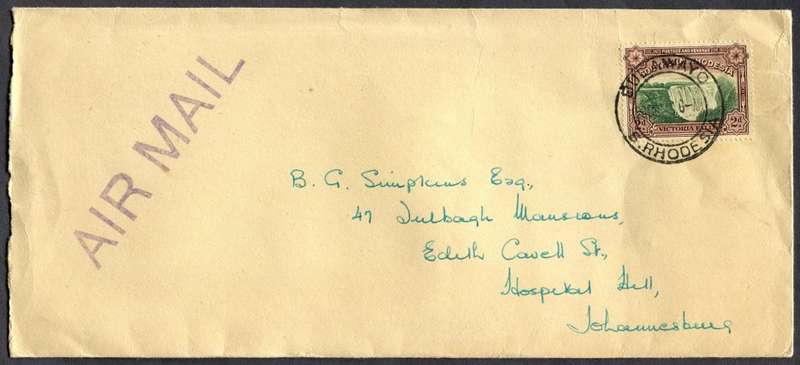 AIR MAIL
POSTAGE AND REVENUE
SOUTHERN RHODESIA
BULAWAYO
S. RHODESIA
2d VICTORIA 2d
B. G. Simpkins Esq.,
47 Tulbagh Mansions,
Edith Cavell St.,
Hospital Hill,
Johannesburg